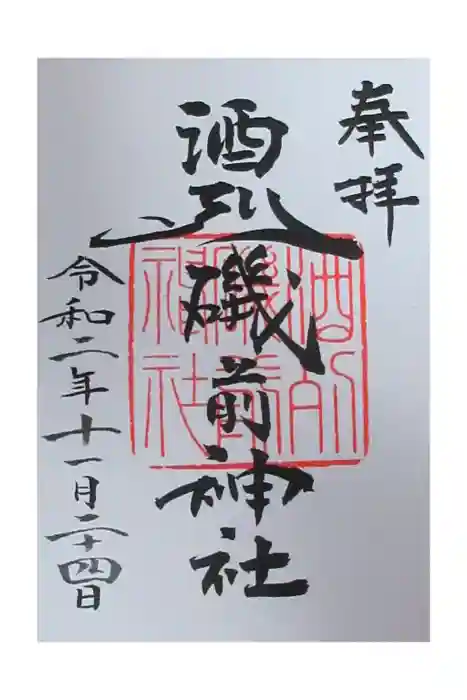 奉拝
酒列磯前神社
酒列
磯前
神社
令和二年十一月二十四日